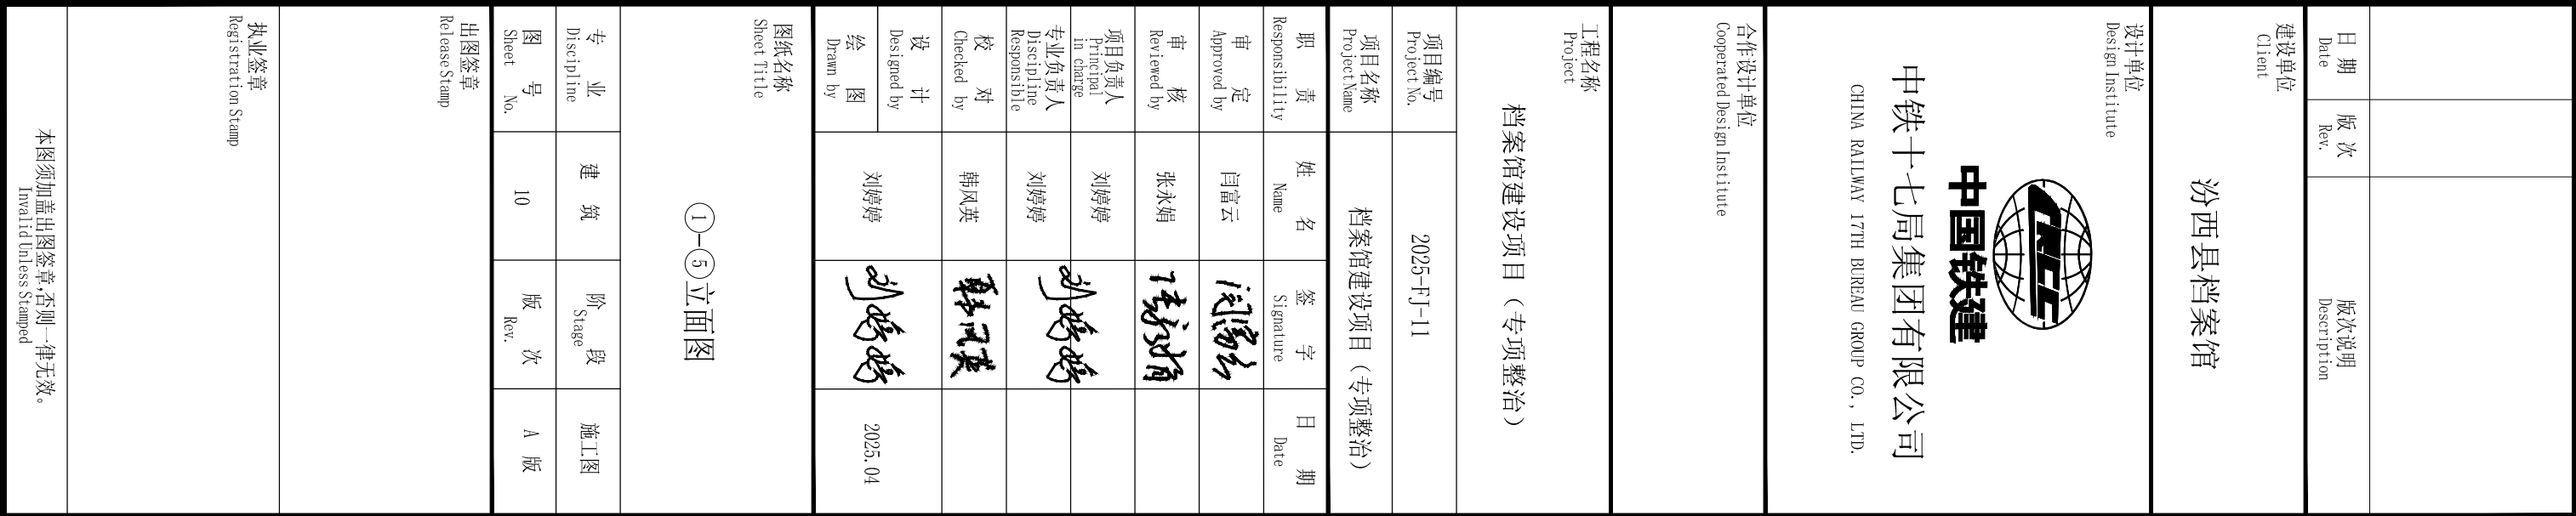 日 期
Date
版 次
Rev.
版次说明
Description
建设单位
Client
汾西县档案馆
设计单位
Design Institute
CRCC
中国铁建
中铁十七局集团有限公司
CHINA RAILWAY 17TH BUREAU GROUP CO., LTD.
合作设计单位
Cooperated Design Institute
工程名称
Project
档案馆建设项目（专项整治）
项目编号
Project No.
2025-FJ-11
项目名称
Project Name
档案馆建设项目（专项整治）
职 责
Responsibility
姓 名
Name
签 字
Signature
日 期
Date
审 定
Approved by
闫富云
闫富云
审 核
Reviewed by
张永娟
张永娟
项目负责人
Principal
in charge
刘婷婷
专业负责人
Discipline
Responsible
刘婷婷
刘婷婷
校 对
Checked by
韩风英
韩风英
设 计
Designed by
绘 图
Drawn by
刘婷婷
刘婷婷
2025.04
图纸名称
Sheet Title
①-⑤立面图
专 业
Discipline
建 筑
阶 段
Stage
施工图
图 号
Sheet No.
10
版 次
Rev.
A 版
出图签章
Release Stamp
执业签章
Registration Stamp
本图须加盖出图签章,否则一律无效。
Invalid Unless Stamped